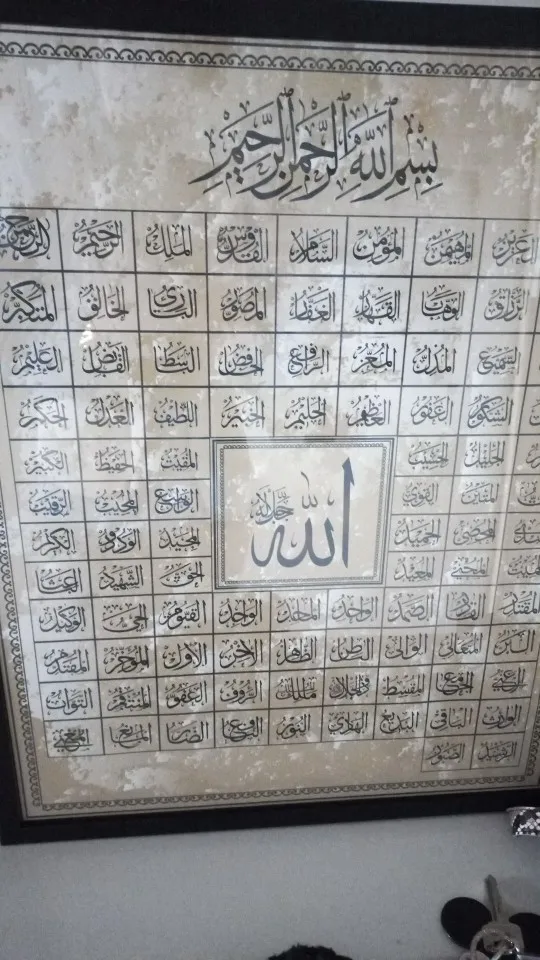 بِسْمِ اللَّهِ الرَّحْمَنِ الرَّحِيمِ
الرحمن الرحيم الملك القدوس السلام المؤمن المهيمن العزيز
المتكبر الخالق الباري المصور الغفار القهار الوهاب الرزاق
العليم القابض الباسط الخافض الرافع المعز المذل السميع
الحكم العدل اللطيف الخبير الحليم العظيم الغفور الشكور
الكبير الحفيظ المقيت الحسيب الجليل
الرقيب المجيب الواسع القوي المتين
الله جل جلاله
الحكيم الودود المجيد الحميد المحصي
الباعث الشهيد الحق المعيد المحيي المميت
الوكيل الحي القيوم الواجد الماجد الواحد الصمد القادر المقتدر
المقدم المؤخر الأول الآخر الظاهر الباطن الوالي المتعالي البر
التواب المنتقم العفو الرؤوف مالك المقسط الجامع الغني
المغني المانع الضار النافع النور الهادي البديع الباقي الوارث
الصبور الرشيد